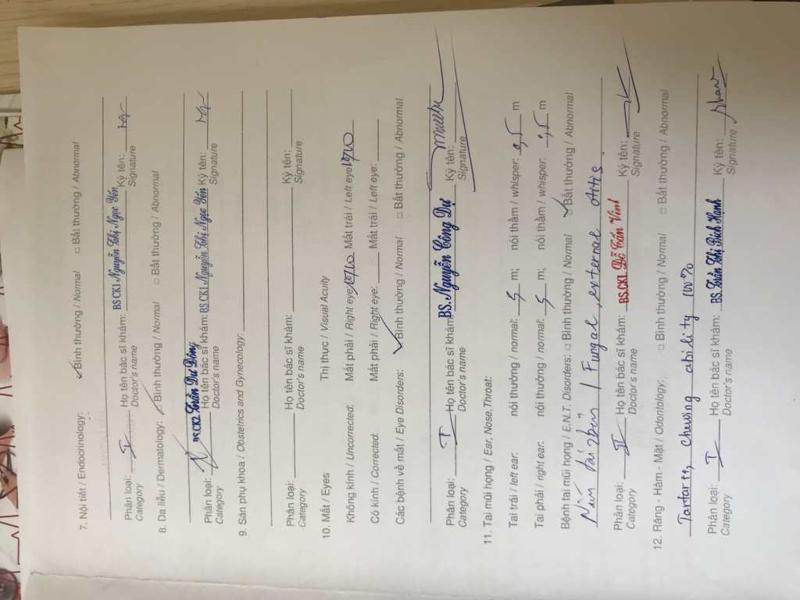 7. Nội tiết / Endocrinology: ✓ Bình thường / Normal □ Bất thường / Abnormal
Phân loại: I Họ tên bác sĩ khám: BS CK1 Nguyễn Thị Ngọc Yến Ký tên:
Category Doctor's name Signature
8. Da liễu / Dermatology: Bình thường / Normal □ Bất thường / Abnormal
BS CK2
Phân loại: Họ tên bác sĩ khám: BS CK1 Nguyễn Thị Ngọc Yến Ký tên:
Category Doctor's name Signature
9. Sản phụ khoa / Obstetrics and Gynecology:
Phân loại: Họ tên bác sĩ khám: Ký tên:
Category Doctor's name Signature
10. Mắt / Eyes Thị thực / Visual Acuity
Không kính / Uncorrected: Mắt phải / Right eye 10/10 Mắt trái / Left eye 10/10
Có kính / Corrected: Mắt phải / Right eye: Mắt trái / Left eye:
Các bệnh về mắt / Eye Disorders: ✓ Bình thường / Normal □ Bất thường / Abnormal
Phân loại: I Họ tên bác sĩ khám: BS. Nguyễn Công Dự Ký tên:
Category Doctor's name Signature
11. Tai mũi họng / Ear, Nose, Throat:
Tai trái / left ear: nói thường / normal: 5 m; nói thầm / whisper: 0,5 m
Tai phải / right ear: nói thường / normal: 5 m; nói thầm / whisper: 0,5 m
Bệnh tai mũi họng / E.N.T. Disorders: □ Bình thường / Normal ✓ Bất thường / Abnormal
Nấm tai 2 bên / Fungal external otitis
Phân loại: II Họ tên bác sĩ khám: BS.CK1. Đỗ Trần Vinh Ký tên:
Category Doctor's name Signature
12. Răng - Hàm - Mặt / Odontology: □ Bình thường / Normal □ Bất thường / Abnormal
Tartar tt, chewing ability 100%
Phân loại: I Họ tên bác sĩ khám: BS. Trần Thị Bích Hạnh Ký tên:
Category Doctor's name Signature